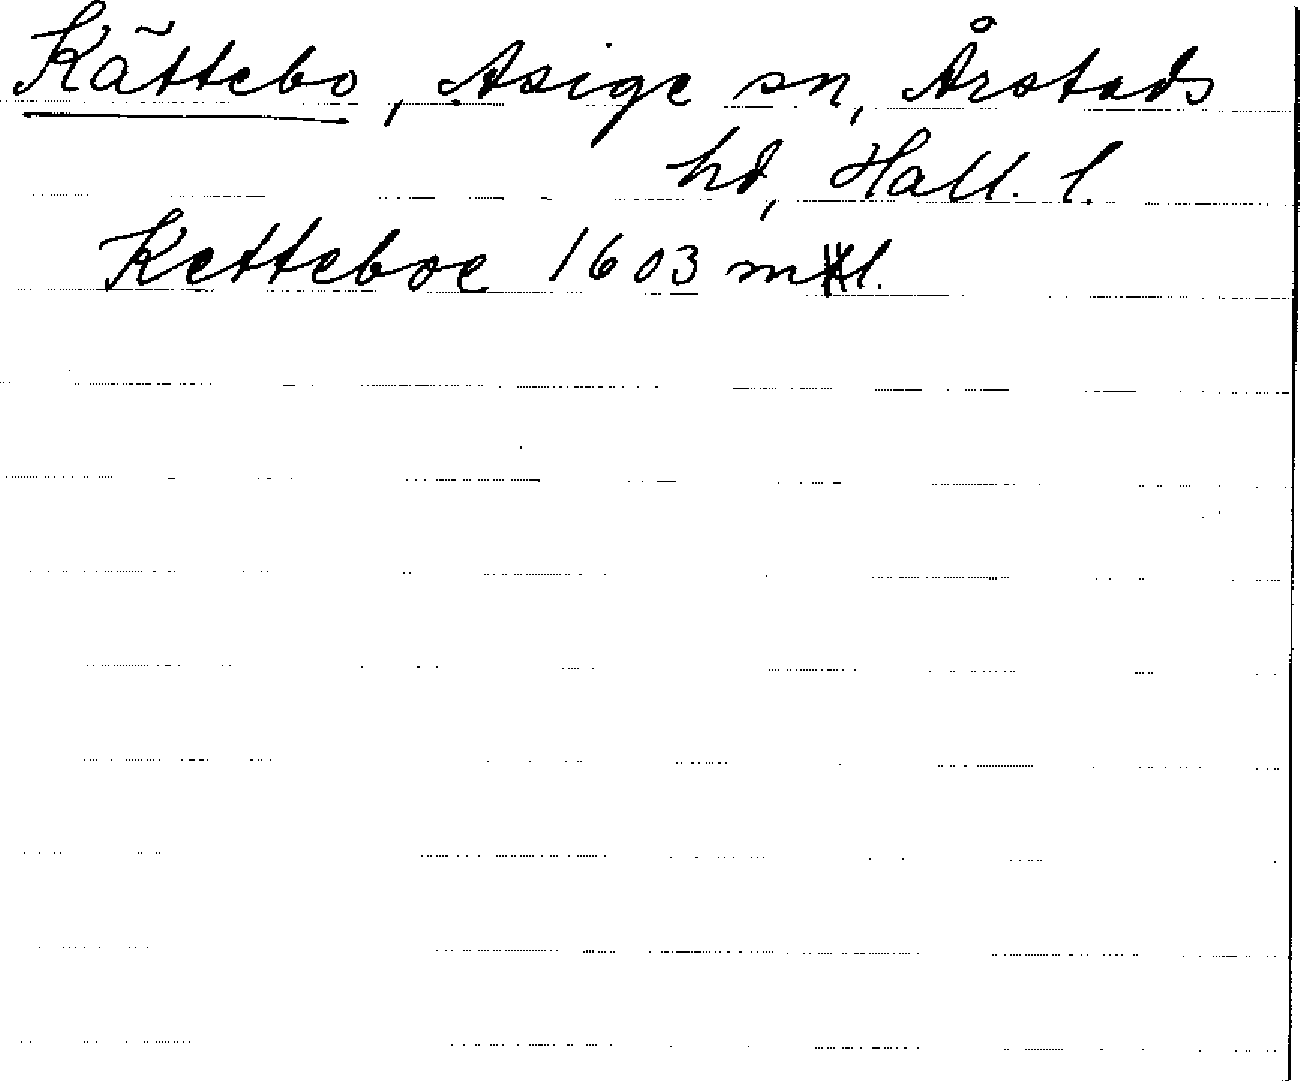 Kättebo, Asige sn, Årstads
hd, Hall. l.
Ketteboe 1603